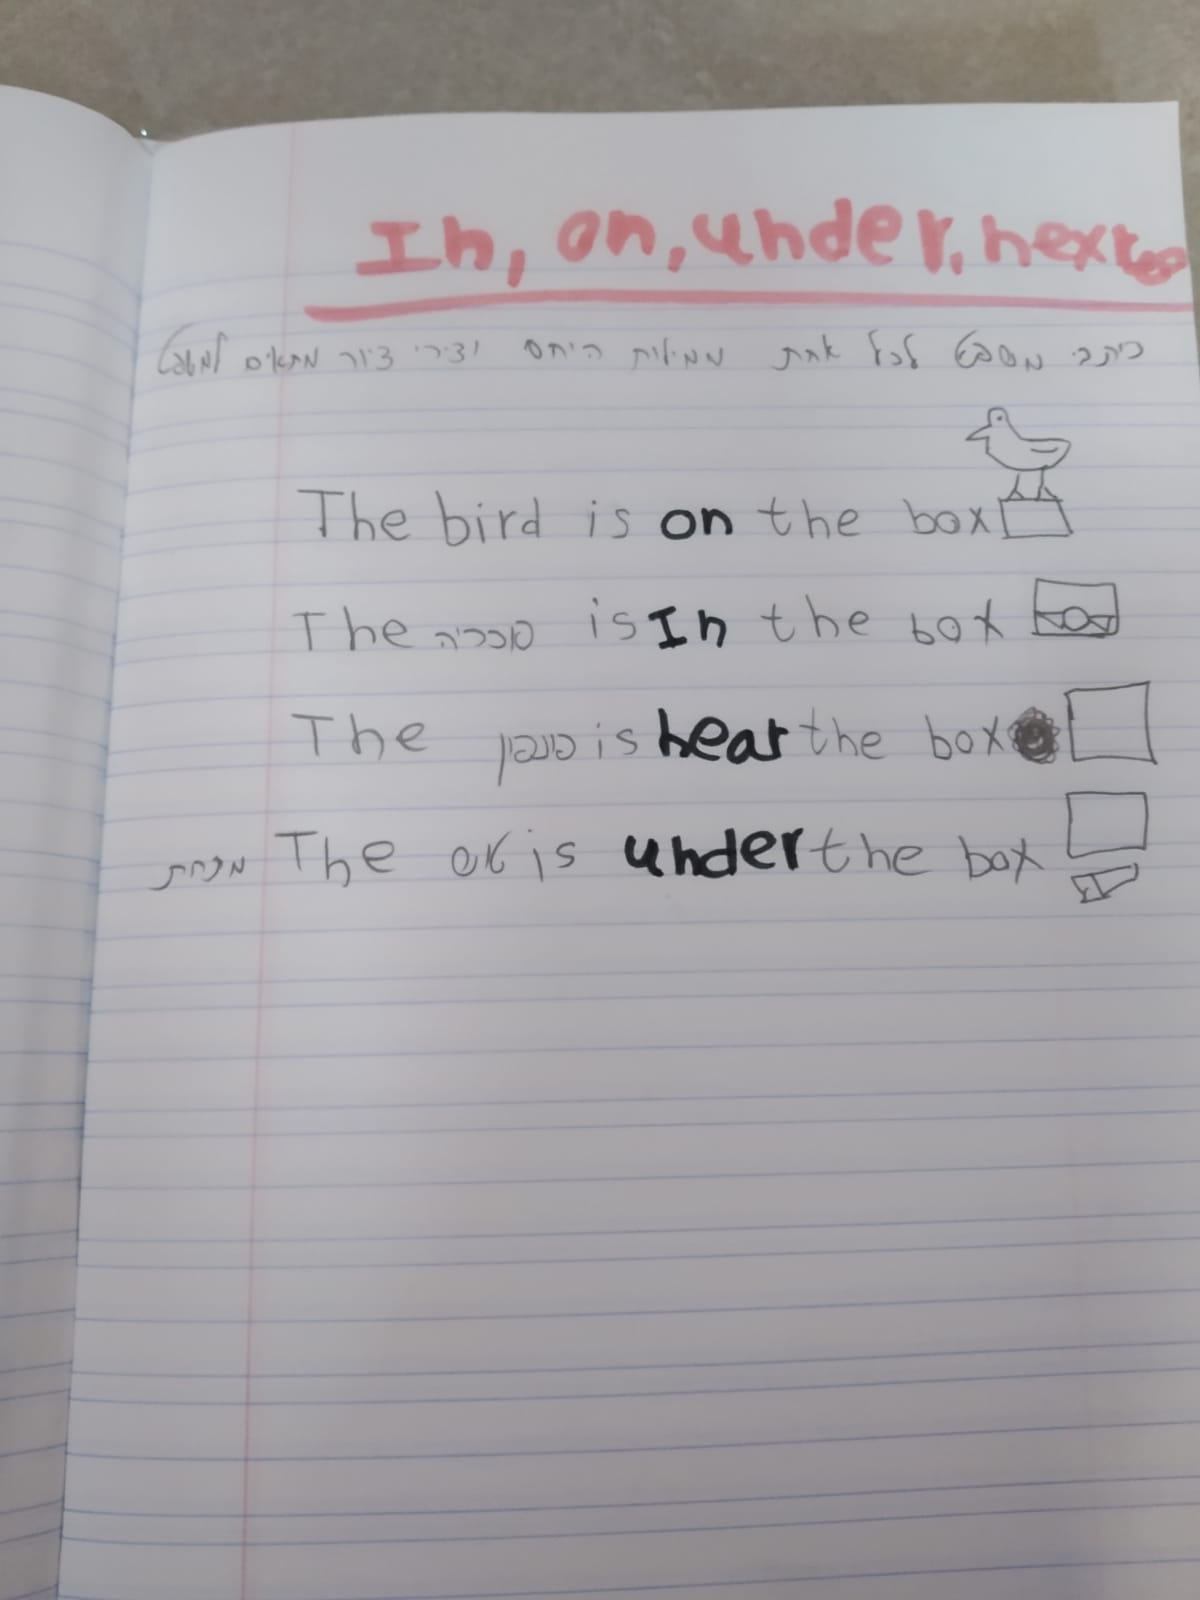 In, on, under, next to
כיתבי משפט לכל אחת ממילות היחס וציירי ציור מתאים למשפט
The bird is on the box
The סוכריה is In the box
The פונפון is near the box
The טוש is under the box